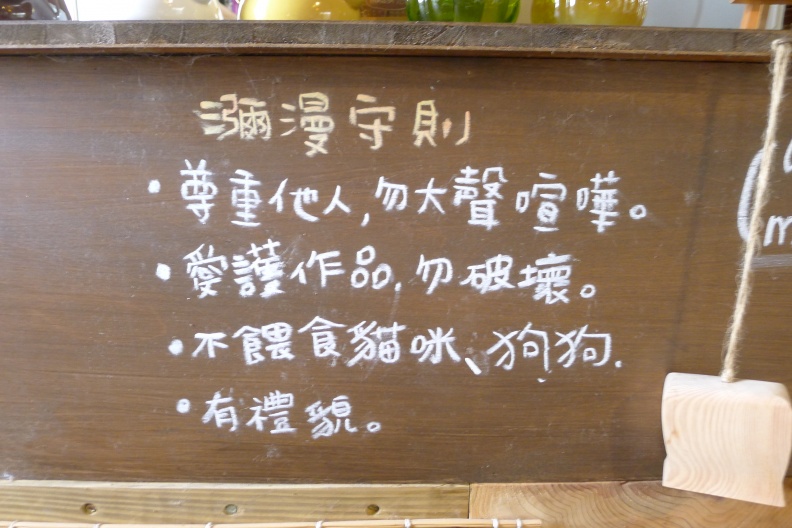 瀰漫守則
·尊重他人,勿大聲喧嘩。
·愛護作品,勿破壞。
·不餵食貓咪、狗狗.
·有禮貌。